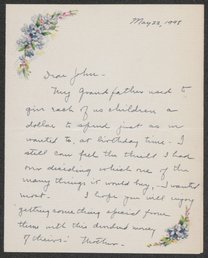 May 22, 1948
Dear John -
My Grandfather used to
give each of us children a
dollar to spend just as we
wanted to, at birthday time. I
still can feel the thrill I had
over deciding which one of the
many things it would buy, I wanted
most. I hope you will enjoy
getting something special from
them with this dividend money
of theirs: Mother.